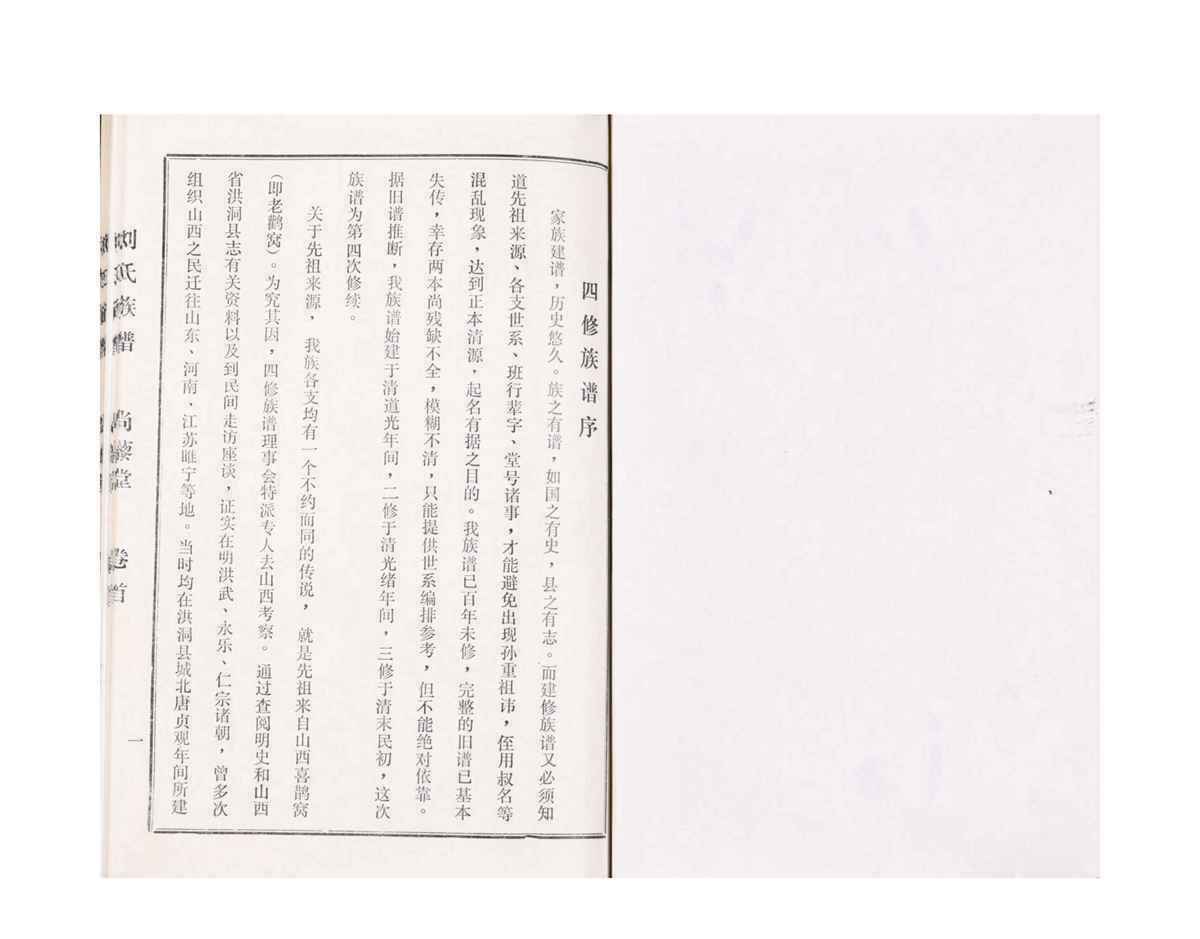 四修族谱序
家族建谱，历史悠久。族之有谱，如国之有史，县之有志。而建修族谱又必须知
道先祖来源、各支世系、班行辈字、堂号诸事，才能避免出现孙重祖讳，侄用叔名等
混乱现象，达到正本清源，起名有据之目的。我族谱已百年未修，完整的旧谱已基本
失传，幸存两本尚残缺不全，模糊不清，只能提供世系编排参考，但不能绝对依靠。
据旧谱推断，我族谱始建于清道光年间，二修于清光绪年间，三修于清末民初，这次
族谱为第四次修续。
关于先祖来源，我族各支均有一个不约而同的传说，就是先祖来自山西喜鹊窝
（即老鹳窝）。为究其因，四修族谱理事会特派专人去山西考察。通过查阅明史和山西
省洪洞县志有关资料以及到民间走访座谈，证实在明洪武、永乐、仁宗诸朝，曾多次
组织山西之民迁往山东、河南、江苏睢宁等地。当时均在洪洞县城北唐贞观年间所建
刘氏族谱 尚藜堂 卷首
一